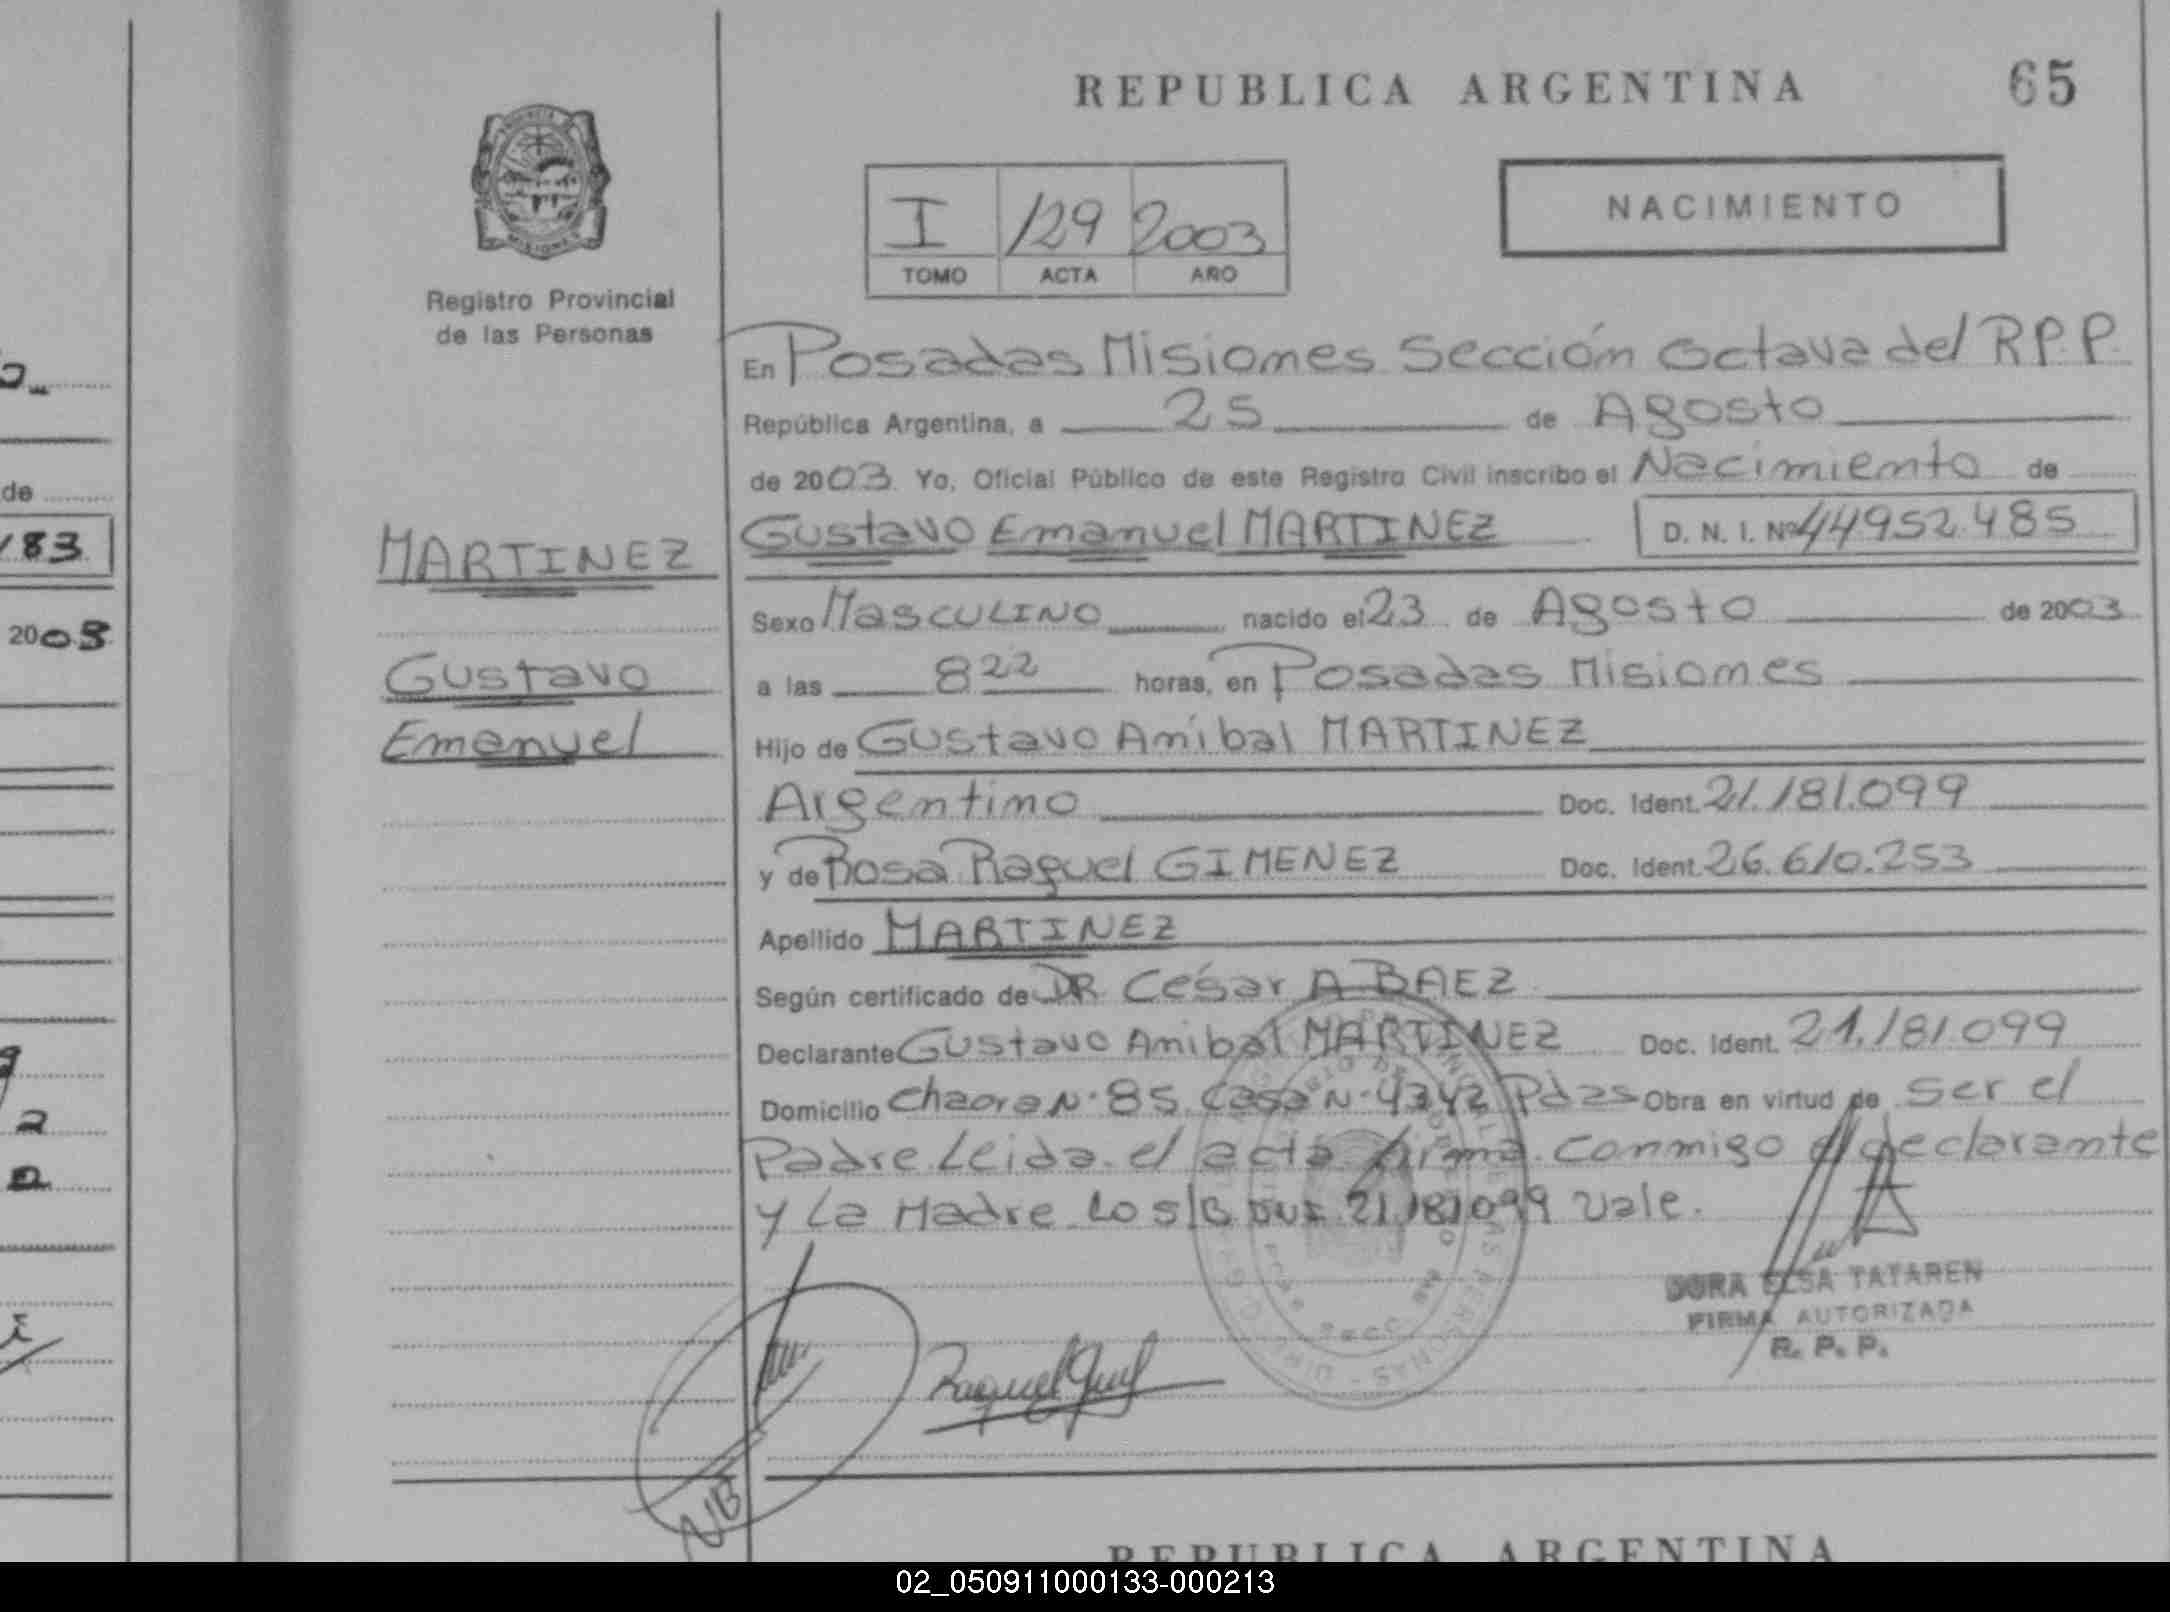 REPUBLICA ARGENTINA
65
I 129 2003
TOMO ACTA AÑO
NACIMIENTO
MISIONES
Registro Provincial
de las Personas
En Posadas Misiones Sección Octava del R.P.P.
República Argentina, a 25 de Agosto
de 2003. Yo, Oficial Público de este Registro Civil inscribo el Nacimiento de
Gustavo Emanuel MARTINEZ D. N. I. Nº 44952.485
MARTINEZ
Gustavo
Emanuel
Sexo MASCULINO nacido el 23 de Agosto de 2003
a las 8 22 horas, en Posadas Misiones
Hijo de Gustavo Aníbal MARTINEZ
Argentino Doc. Ident. 21.181.099
y de Rosa Raquel GIMENEZ Doc. Ident. 26.610.253
Apellido MARTINEZ
Según certificado de DR César A BAEZ
Declarante Gustavo Anibal MARTINEZ Doc. Ident. 21.181.099
Domicilio chacra N· 85 casa N· 4342 Pdas Obra en virtud de ser el
Padre. Leida el acta firma conmigo el declarante
y La Madre Lo s/B DNI 21.181.099 vale.
DORA ELSA TATAREN
FIRMA AUTORIZADA
R. P. P.
NB
REPUBLICA ARGENTINA
de
183
2003
02_050911000133-000213